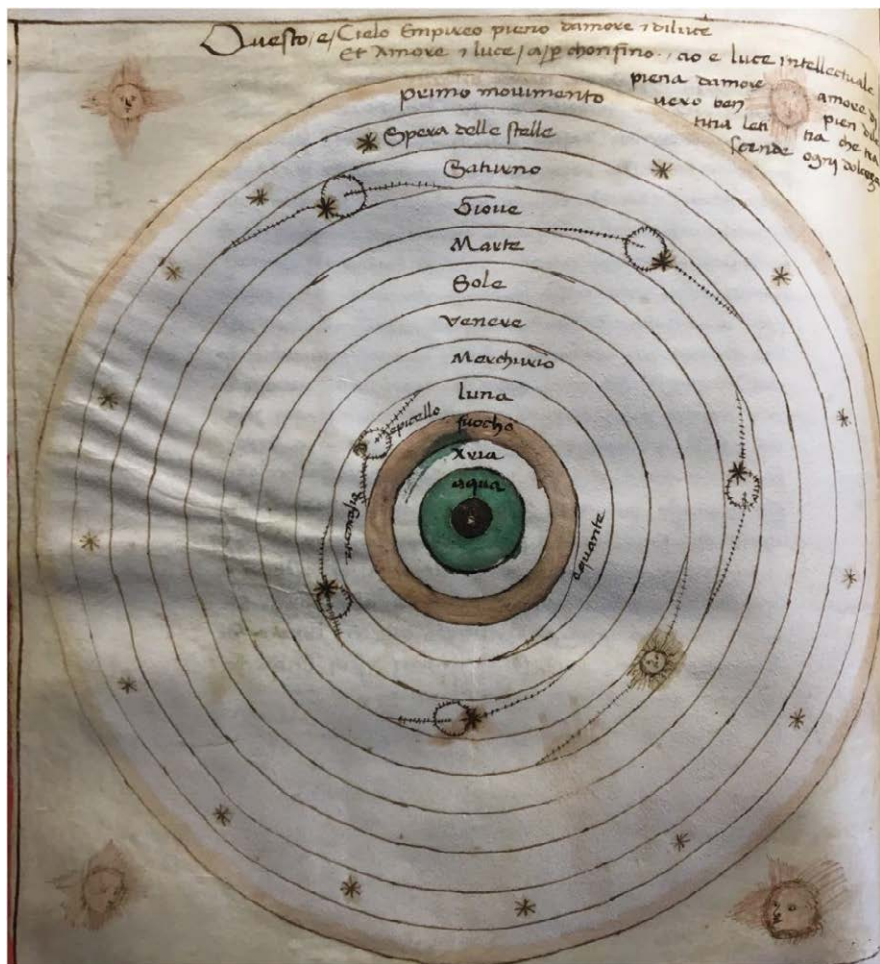 Questo / e / Cielo Empireo pieno damore i diluce
Et Amore i luce / a / p chonfino . cio e luce intellectuale
piena damore amore di
vero ben pien di le
titia leti tia che tra
scende ogni dolceza
primo movimento
Spera delle stelle
Saturno
Giove
Marte
Sole
Venere
Merchurio
luna
epicello
fuocho
Aria
aqua
equante